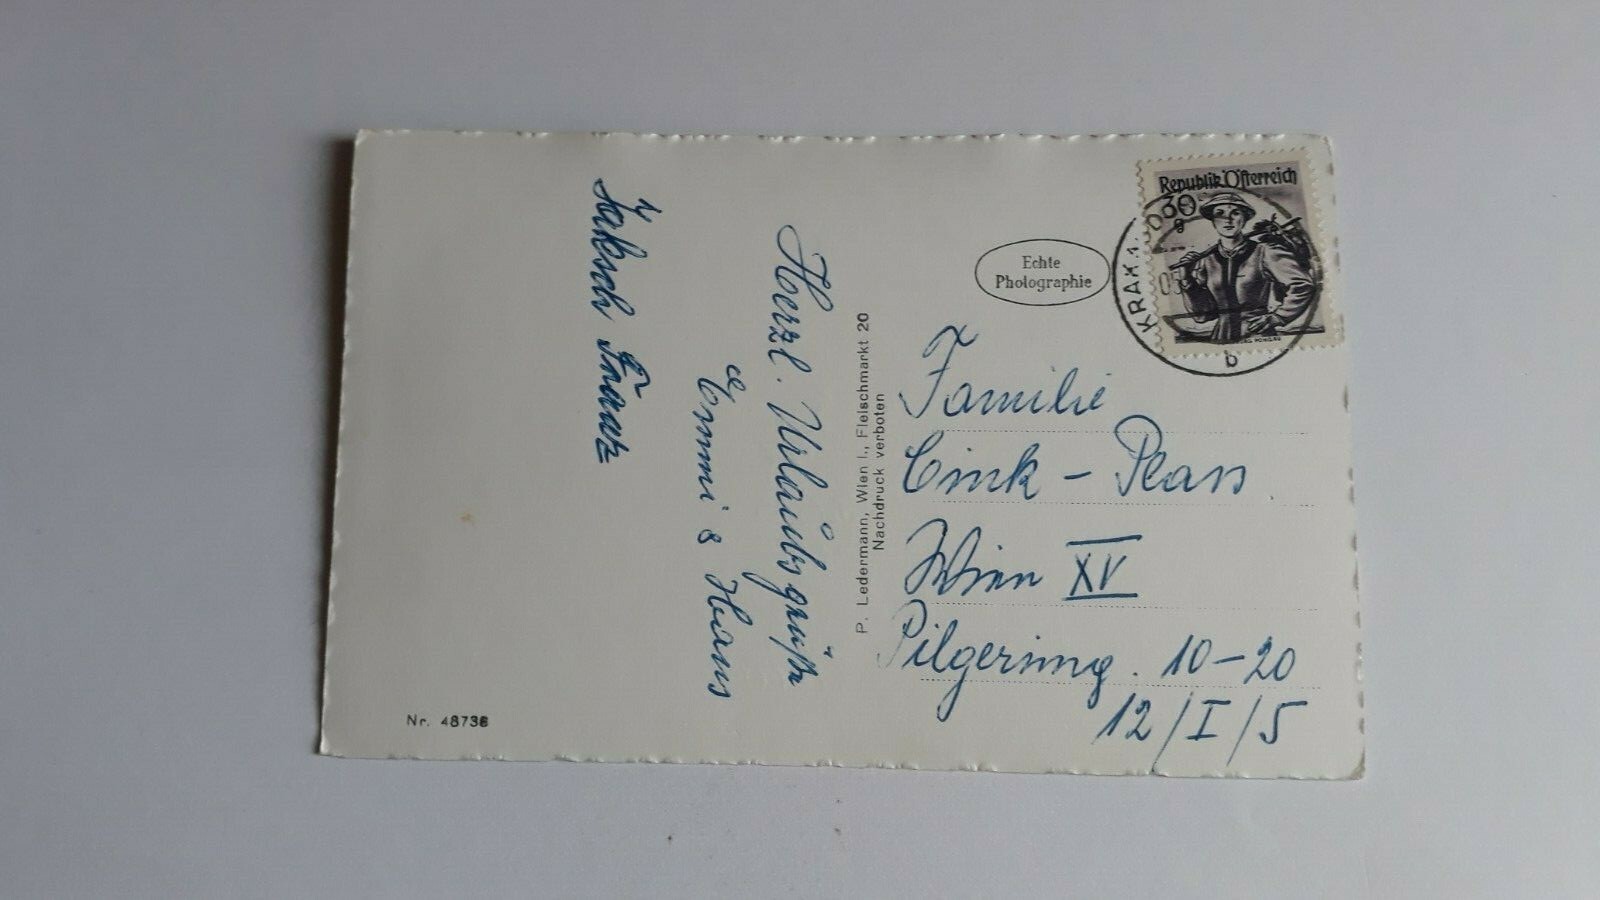 Republik Österreich
30
g
Echte
Photographie
Herzl. Urlaubsgrüße
Emmi & Hans
Franz
P. Ledermann, Wien I., Fleischmarkt 20
Nachdruck verboten
Familie
Cink - Plass
Wien XV
Pilgering. 10-20
12/I/5
Nr. 48736
b